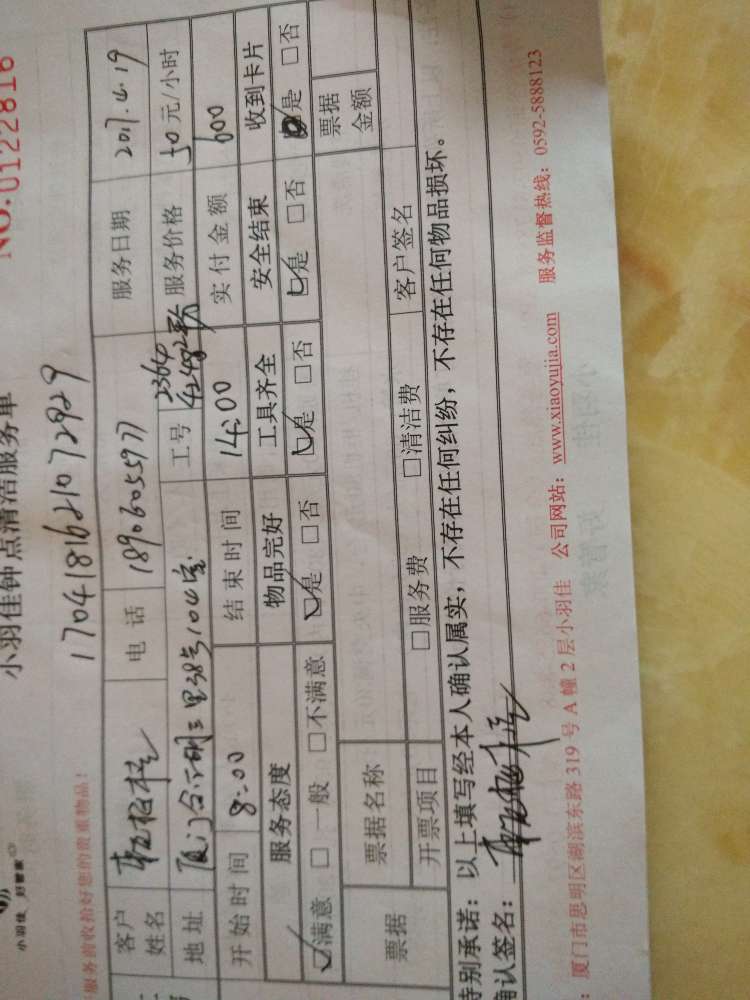 小羽佳 好管家
小羽佳钟点清洁服务单
NO.0122816
1704181621072929
服务前收拾好您的贵重物品！
客户姓名 电话 18906055977 服务日期 2017.4.19
地址 工号 2364 服务价格 50元/小时
开始时间 8:00 结束时间 14:00 实付金额 600
服务态度 物品完好 工具齐全 安全结束 收到卡片
☑满意 □一般 □不满意 ☑是 □否 ☑是 □否 ☑是 □否 ☑是 □否
票据 票据名称 票据金额
开票项目 □服务费 □清洁费 客户签名
特别承诺：以上填写经本人确认属实，不存在任何纠纷，不存在任何物品损坏。
确认签名：
：厦门市思明区湖滨东路 319 号 A 幢 2 层小羽佳 公司网站：www.xiaoyujia.com 服务监督热线：0592-5888123